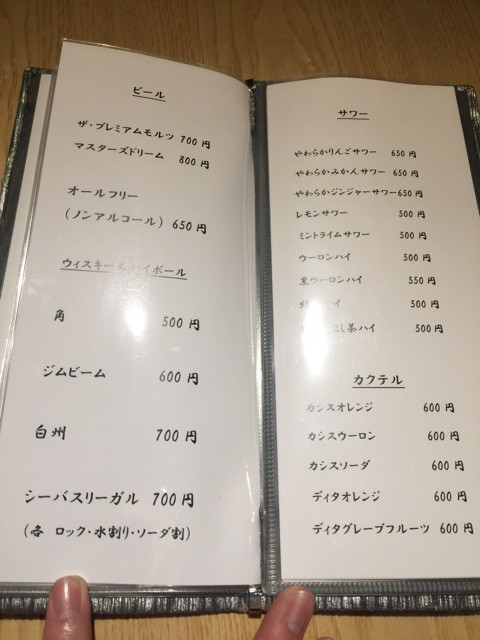 ビール
ザ・プレミアムモルツ 700円
マスターズドリーム 800円
オールフリー
(ノンアルコール) 650円
ウィスキー ハイボール
角 500円
ジムビーム 600円
白州 700円
シーバスリーガル 700円
(各 ロック・水割り・ソーダ割)
サワー
やわらかりんごサワー 650円
やわらかみかんサワー 650円
やわらかジンジャーサワー 650円
レモンサワー 500円
ミントライムサワー 500円
ウーロンハイ 500円
黒ウーロンハイ 550円
ハイ 500円
こし茶ハイ 500円
カクテル
カシスオレンジ 600円
カシスウーロン 600円
カシスソーダ 600円
ディタオレンジ 600円
ディタグレープフルーツ 600円